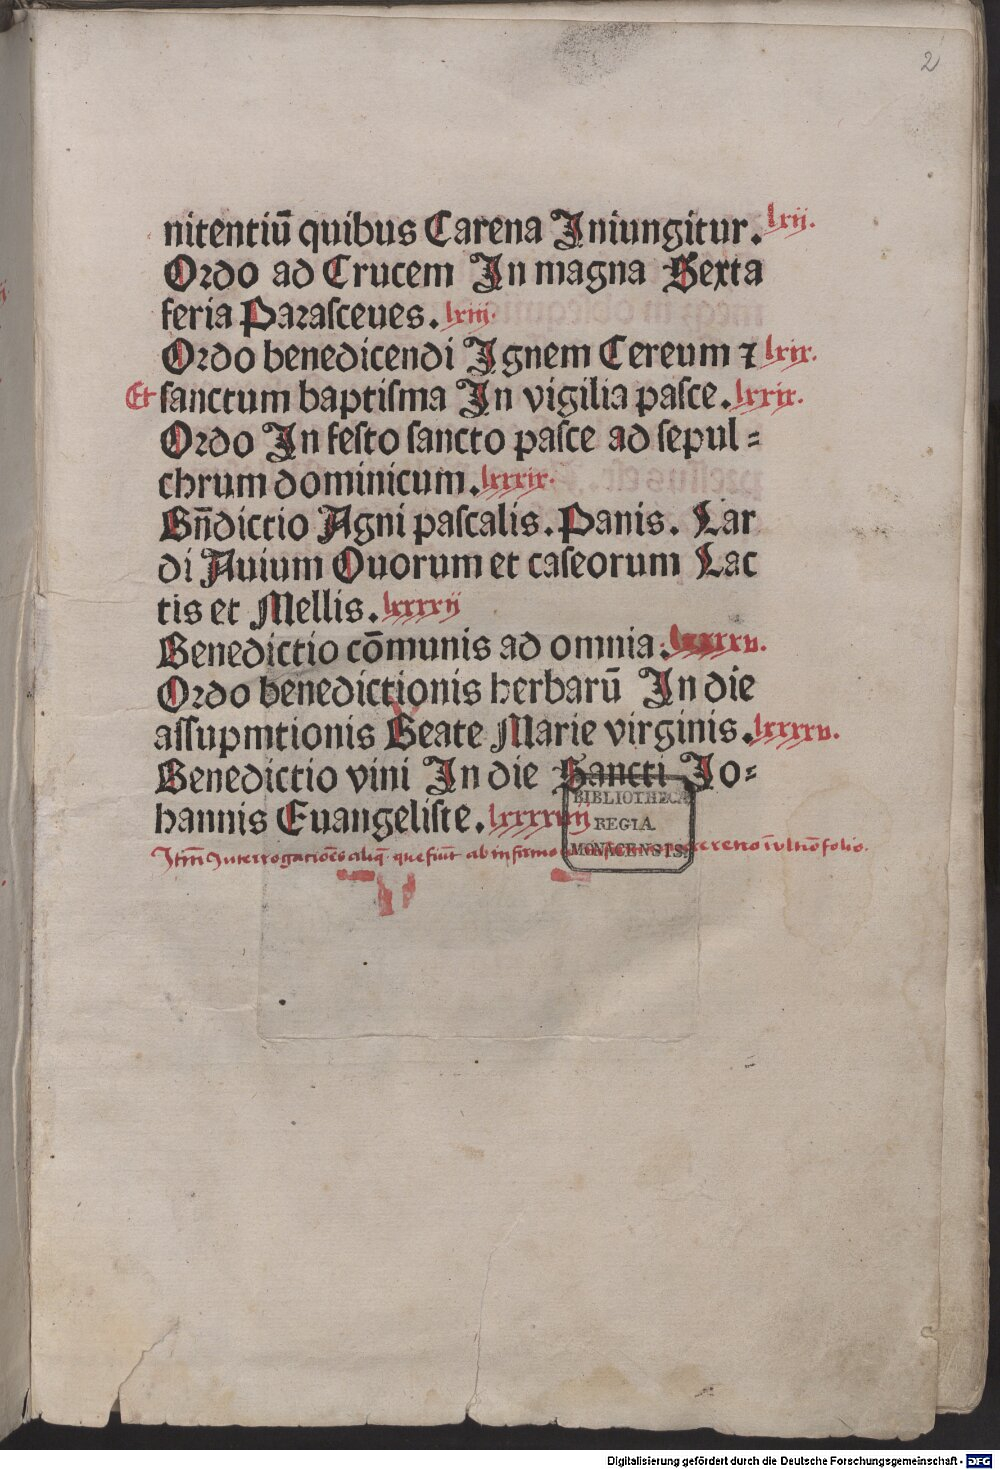 2
nitentiū quibus Carena Iniungitur. lxij.
Ordo ad Crucem In magna Sexta
feria Parasceues. lxiij.
Ordo benedicendi Ignem Cereum ⁊ lxix.
Et sanctum baptisma In vigilia pasce. lxxix.
Ordo In festo sancto pasce ad sepul=
chrum dominicum. lxxxix.
Bn̄dictio Agni pascalis. Panis. Lar
di Auium Ouorum et caseorum Lac
tis et Mellis. lxxxxij
Benedictio cōmunis ad omnia. lxxxxv.
Ordo benedictionis herbarū In die
assupmtionis Beate Marie virginis. lxxxxv.
Benedictio vini In die Sancti Jo=
hannis Euangeliste.
Interrogacio͞es aliq̄ que fiūt ab infirmo folio.
BIBLIOTHECA
REGIA
MONACENSIS.
Digitalisierung gefördert durch die Deutsche Forschungsgemeinschaft - DFG